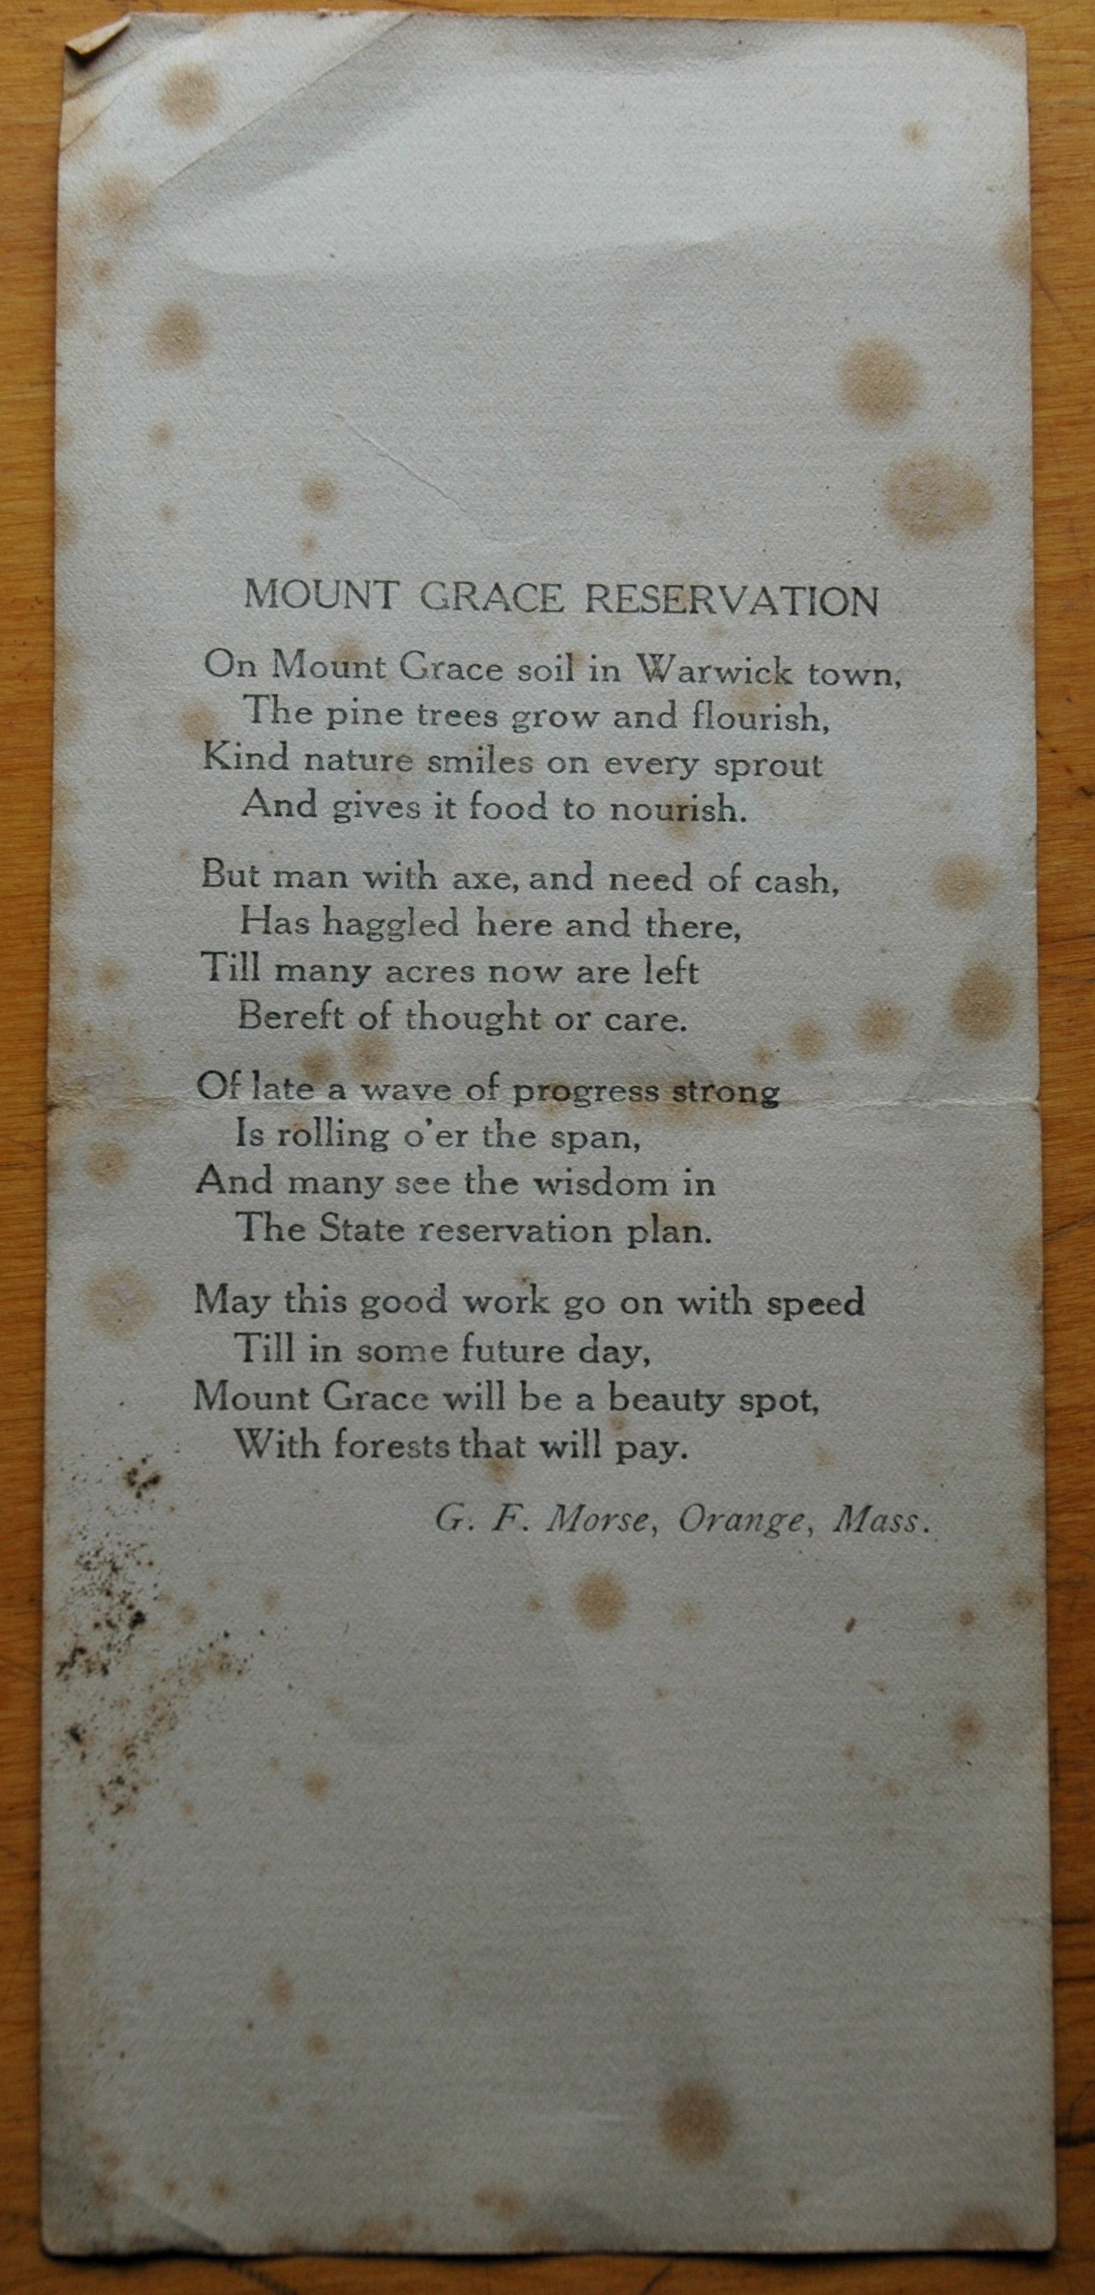 MOUNT GRACE RESERVATION
On Mount Grace soil in Warwick town,
The pine trees grow and flourish,
Kind nature smiles on every sprout
And gives it food to nourish.
But man with axe, and need of cash,
Has haggled here and there,
Till many acres now are left
Bereft of thought or care.
Of late a wave of progress strong
Is rolling o'er the span,
And many see the wisdom in
The State reservation plan.
May this good work go on with speed
Till in some future day,
Mount Grace will be a beauty spot,
With forests that will pay.
G. F. Morse, Orange, Mass.